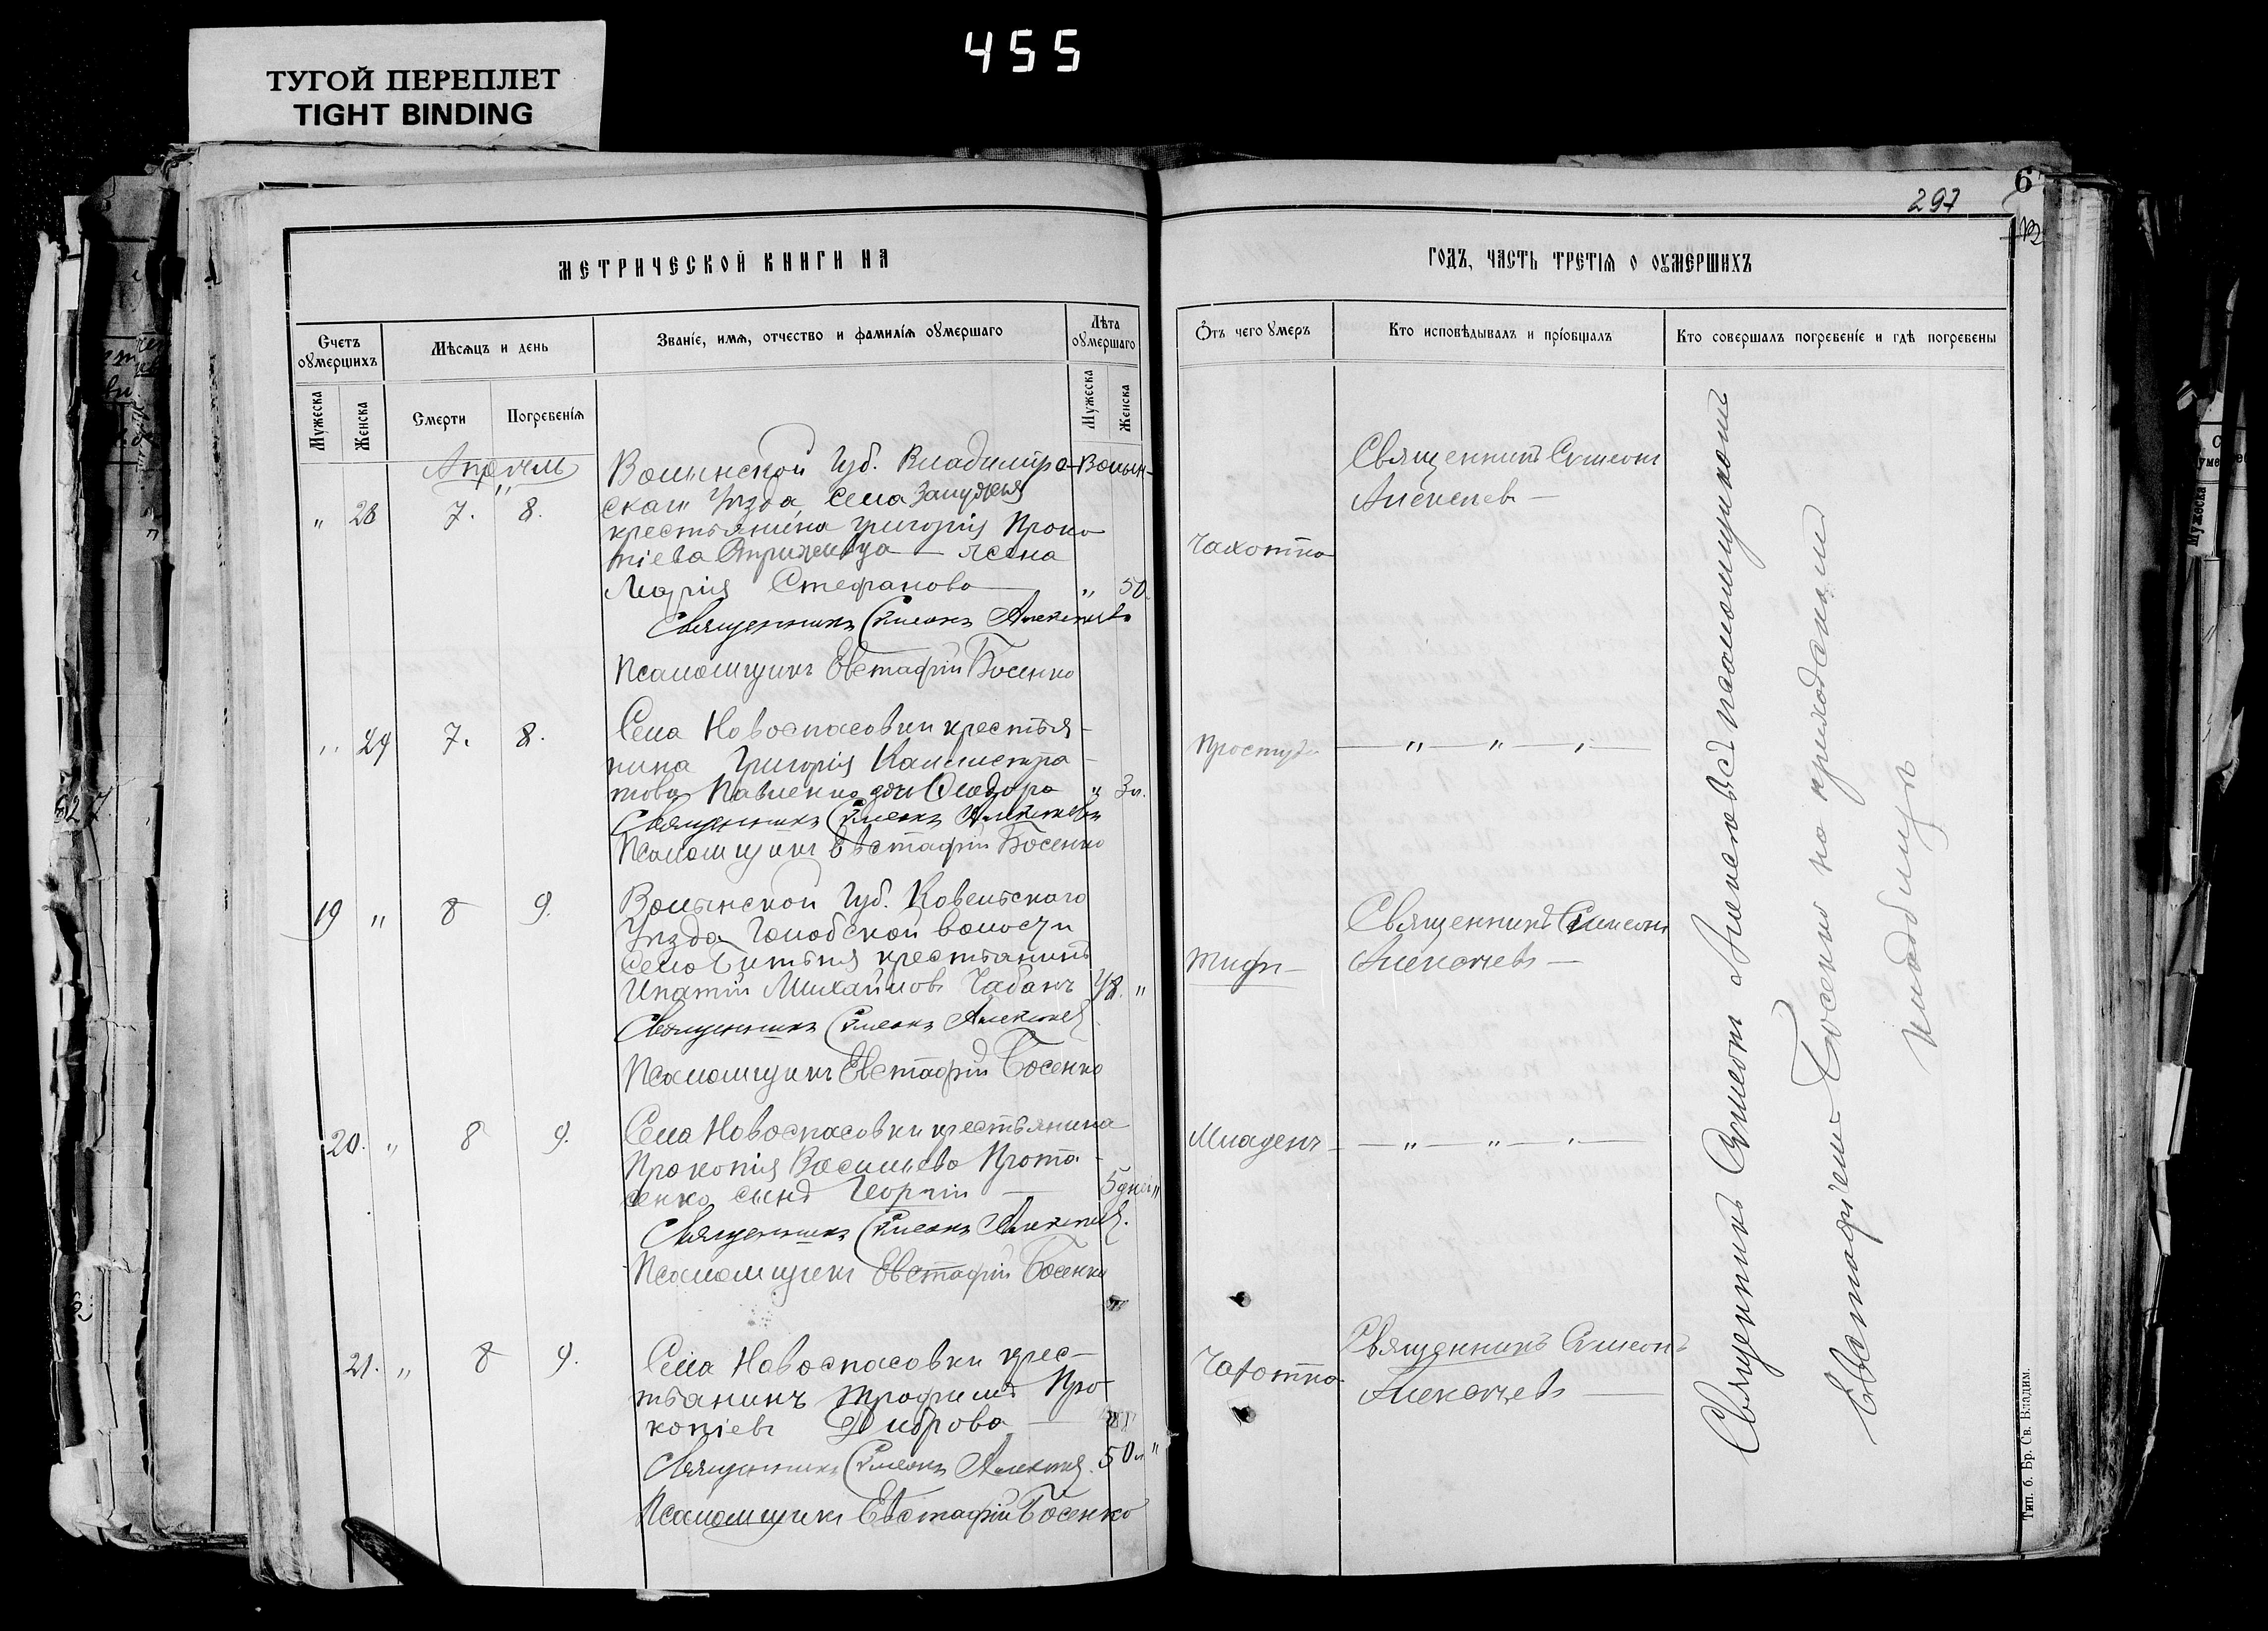 455
ТУГОЙ ПЕРЕПЛЕТ
TIGHT BINDING
297
6
МЕТРИЧЕСКОЙ КНИГИ НА
Счетъ оумершихъ
Мѣсяцъ и день
Званіе, имя, отчество и фамилія оумершаго
Лѣта оумершаго
Мужеска
Женска
Смерти
Погребенія
Мужеска
Женска
Апрѣль
Волынской Губ. Владимиро-Волын-
скаго Уѣзда, села
" 28 7. 8.
крестьянина Григорія Проко
піева жена
Марія Стефанова " 50
Священникъ Симеонъ Алексѣевъ
Псаломщикъ Евстафій Босенко
" 29 7. 8. Села Новоспасовки крестья-
нина Григорія Калистра-
това Павленко доч Ѳеодора " 3 л.
Священникъ Симеонъ Алексѣевъ
Псаломщикъ Евстафій Босенко
19 " 8 9. Волынской Губ. Ковельскаго
Уѣзда Голобской волости
села крестьянинъ
Ипатій Михайловъ Чабанъ 48. "
Священникъ Симеонъ Алексѣев
Псаломщикъ Евстафій Босенко
20. " 8 9. Села Новоспасовки крестьянина
Прокопія Васильева Прота-
сенко сынъ Георгій 5 дней "
Священникъ Симеонъ Алексѣев.
Псаломщикъ Евстафій Босенко
21. " 8 9. Села Новоспасовки крес-
тьанинъ Трофимъ Про-
копіевъ Диброва
50 л "
Священникъ Симеонъ Алексѣев.
Псаломщикъ Евстафій Босенко
ГОДЪ, ЧАСТЬ ТРЕТІЯ О ОУМЕРШИХЪ
Ѿтъ чего умеръ
Кто исповѣдывалъ и пріобщалъ
Кто совершалъ погребеніе и гдѣ погребены
Священникъ Симеонъ
Алексѣевъ —
Чахотка
Простуда — " — " — " —
Священникъ Симеонъ
Тифъ — Алексѣевъ —
Младенч — " — " — " —
Священникъ Симеонъ
Чахотка Алексѣевъ —
Священникъ Симеонъ Алексѣевъ съ псаломщикомъ
Евстафіемъ Босенко на приходскомъ
кладбищѣ
Тип. б. Бр. Св. Владим.